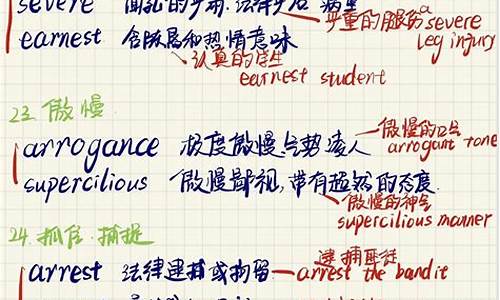 severe
严重的腿伤 a severe
leg injury
earnest 含肤局和热情意味
认真的学生
earnest student
23. 傲慢
arrogance 极度傲慢.气势凌人
傲慢的口气
arrogant tone
supercilious 傲慢鄙视,带有超然的态度.
傲慢的神气
supercilious manner
24. 抓住.捕捉
arrest 法律逮捕或拘留
逮捕匪徒
arrest the bandit